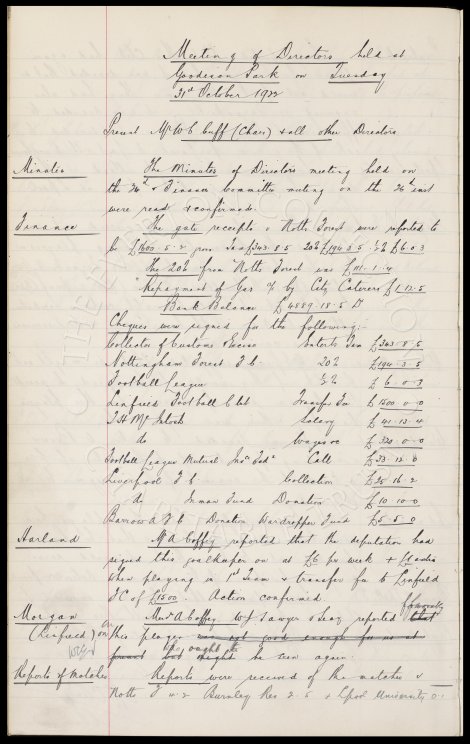 Meeting of Directors held at
Goodison Park on Tuesday
31st October 1922
Present Mr W C Cuff (Chair) & all other Directors
Minutes The Minutes of Directors meeting held on
the 24th & Finance Committee meeting on the 26th inst
were read & confirmed.
Finance The gate receipts v Notts Forest were reported to
be £1600.5.2 gross Tax £343.8.5 20% £194.3.5 ½% £6.0.3
The 20% from Notts Forest was £111.1.4
Repayment of Gas % by City Caterers £1.12.5
Bank Balance £4889.18.5 Dr
Cheques were signed for the following:-
Collector of Customs & Excise Enterts Tax £343.8.5
Nottingham Forest F C. 20% £194.3.5
Football League ½% £6.0.3
Linfield Football Club Transfer Fee £1500.0.0
T H McIntosh Salary £41.13.4
do Wages &c £320.0.0
Football League Mutual Insce Fedn Call £33.12.0
Liverpool F C Collection £25.16.2
do Inman Fund Donation £10.10.0
Barrow A F C Donation Wardropper Fund £5.5.0
Harland Mr A Coffey reported that the deputation had
signed this goalkeeper on at £6 per week & £1 extra
when playing in 1st Team & transfer fee to Linfield
F C of £1500. Action confirmed.
Morgan Messrs A Coffey W J Sawyer & reported favourably that
(Linfield) on this player was not good enough for us at
present but might he ought to be seen again.
Reports of Matches Reports were received of the matches v
Notts F. Burnley Res 2-5 & Lpool University